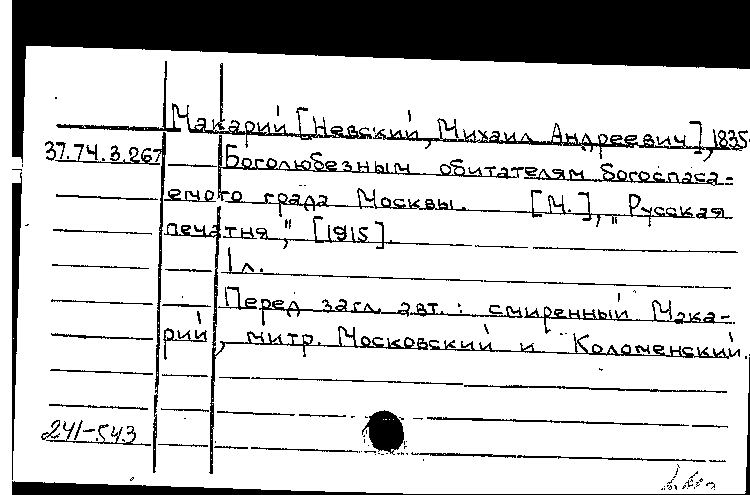 Макарий [Невский, Михаил Андреевич], 1835-
37.74.3.267 Боголюбезным обитателям богоспаса-
емого града Москвы. [М.], "Русская
печатня", [1915].
1 л.
Перед загл. авт.: смиренный Мака-
рий, митр. Московский и Коломенский.
241-543